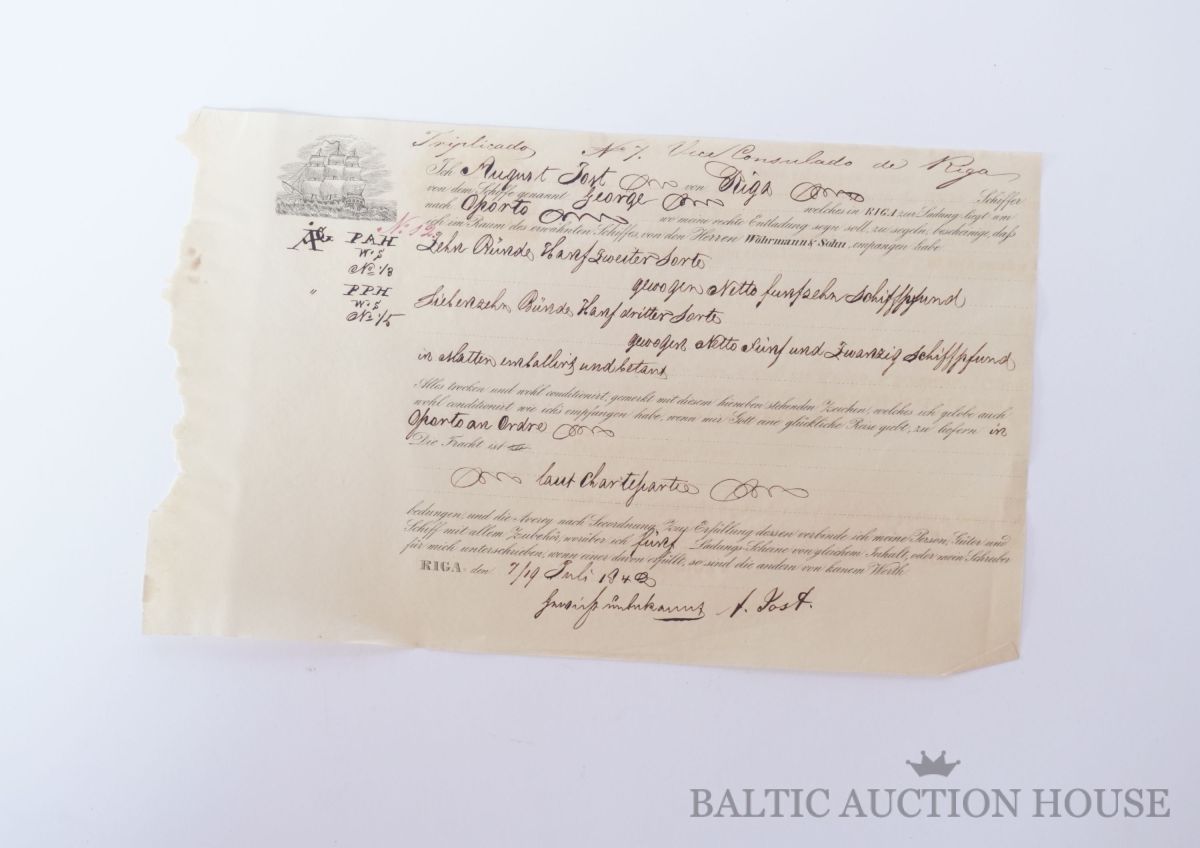 Triplicado N° 7. Vice Consulado de Riga
Ich August Jost von Riga Schiffer
von dem Schiffe genannt George welches in RIGA zur Ladung liegt um
nach Oporto wo meine rechte Entladung seyn soll, zu segeln, bescheinige, daß
ich im Raum des erwähnten Schiffes, von den Herren Wöhrmann & Sohn, empfangen habe
P A H
W & S
N° 1/3
Zehn Bünde Hanf zweiter Sorte
gewogen Netto funfzehn Schiffpfund
P P H
W & S
N° 1/5
Siebenzehn Bünde Hanf dritter Sorte
gewogen Netto Fünf und Zwanzig Schiffpfund
in Matten emballirt und
Alles trocken und wohl conditionirt, gemerkt mit diesem hieneben stehenden Zeichen, welches ich gelobe auch
wohl conditionirt wie ich's empfangen habe, wenn mir Gott eine glückliche Reise giebt, zu liefern in
Oporto an Ordre
Die Fracht ist
laut Chartepartie
bedungen; und die Averey nach Seeordnung. Zug Erfüllung dessen verbinde ich meine Person, Güter und
Schiff mit allem Zubehör, worüber ich fünf Ladungs-Scheine von gleichem Inhalt, oder mein Schreiber
für mich unterschrieben, wenn einer davon erfüllt, so sind die andern von keinem Werth.
RIGA den 7/19 Juli 184
Gewicht unbekannt A. Jost.
BALTIC AUCTION HOUSE